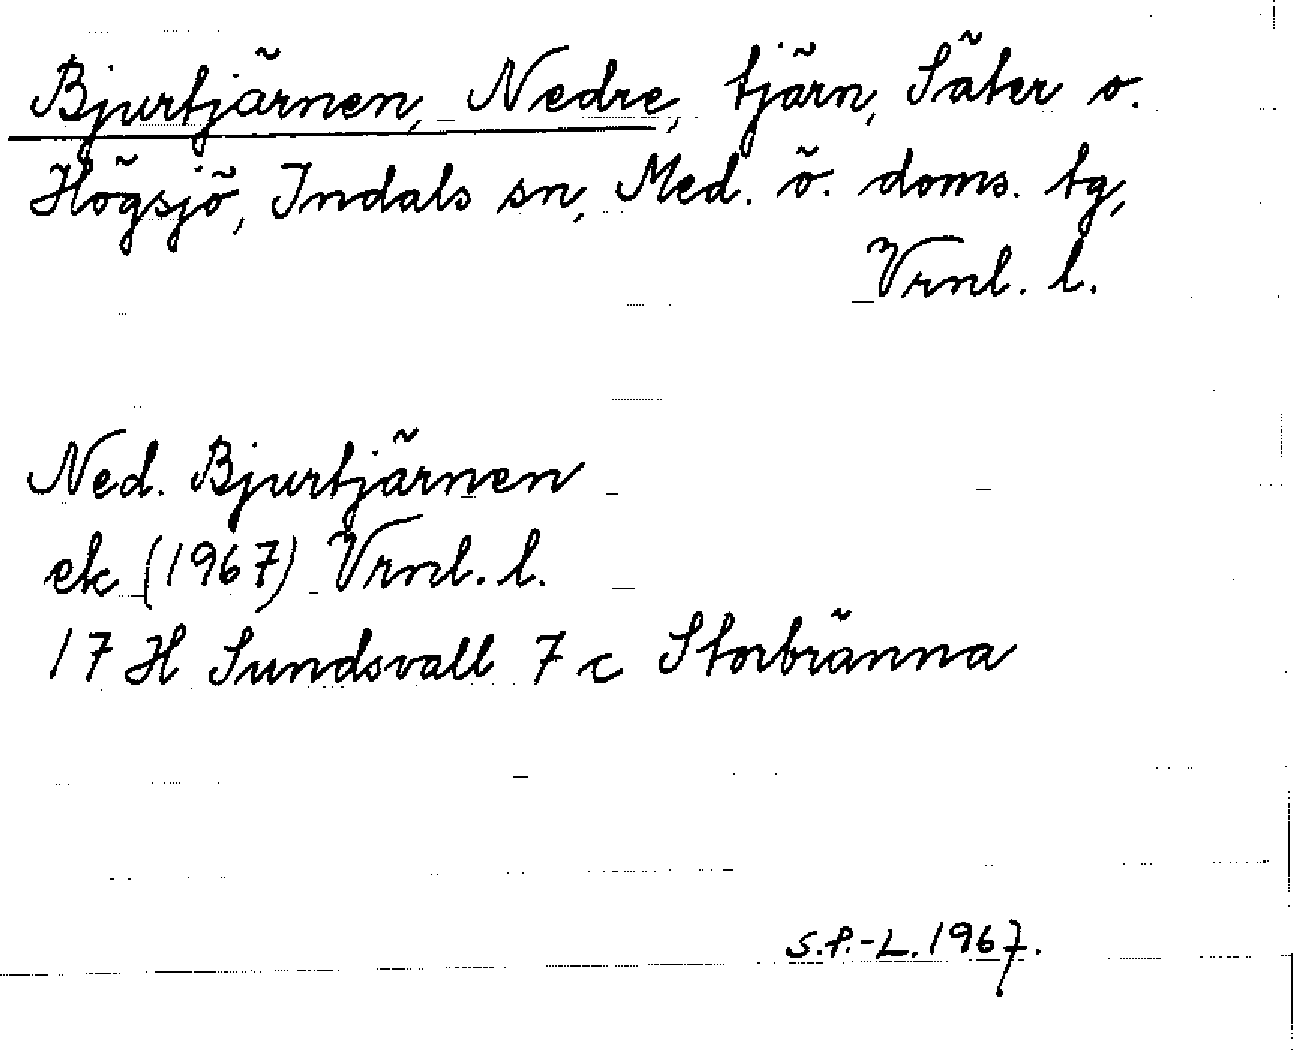 Bjurtjärnen, Nedre, tjärn, Säter o.
Högsjö, Indals sn, Med. ö. doms. tg,
Vrnl. l.
Ned. Bjurtjärnen
ek (1967) Vrnl. l.
17 H Sundsvall 7 c Storbränna
S.P.-L. 1967.